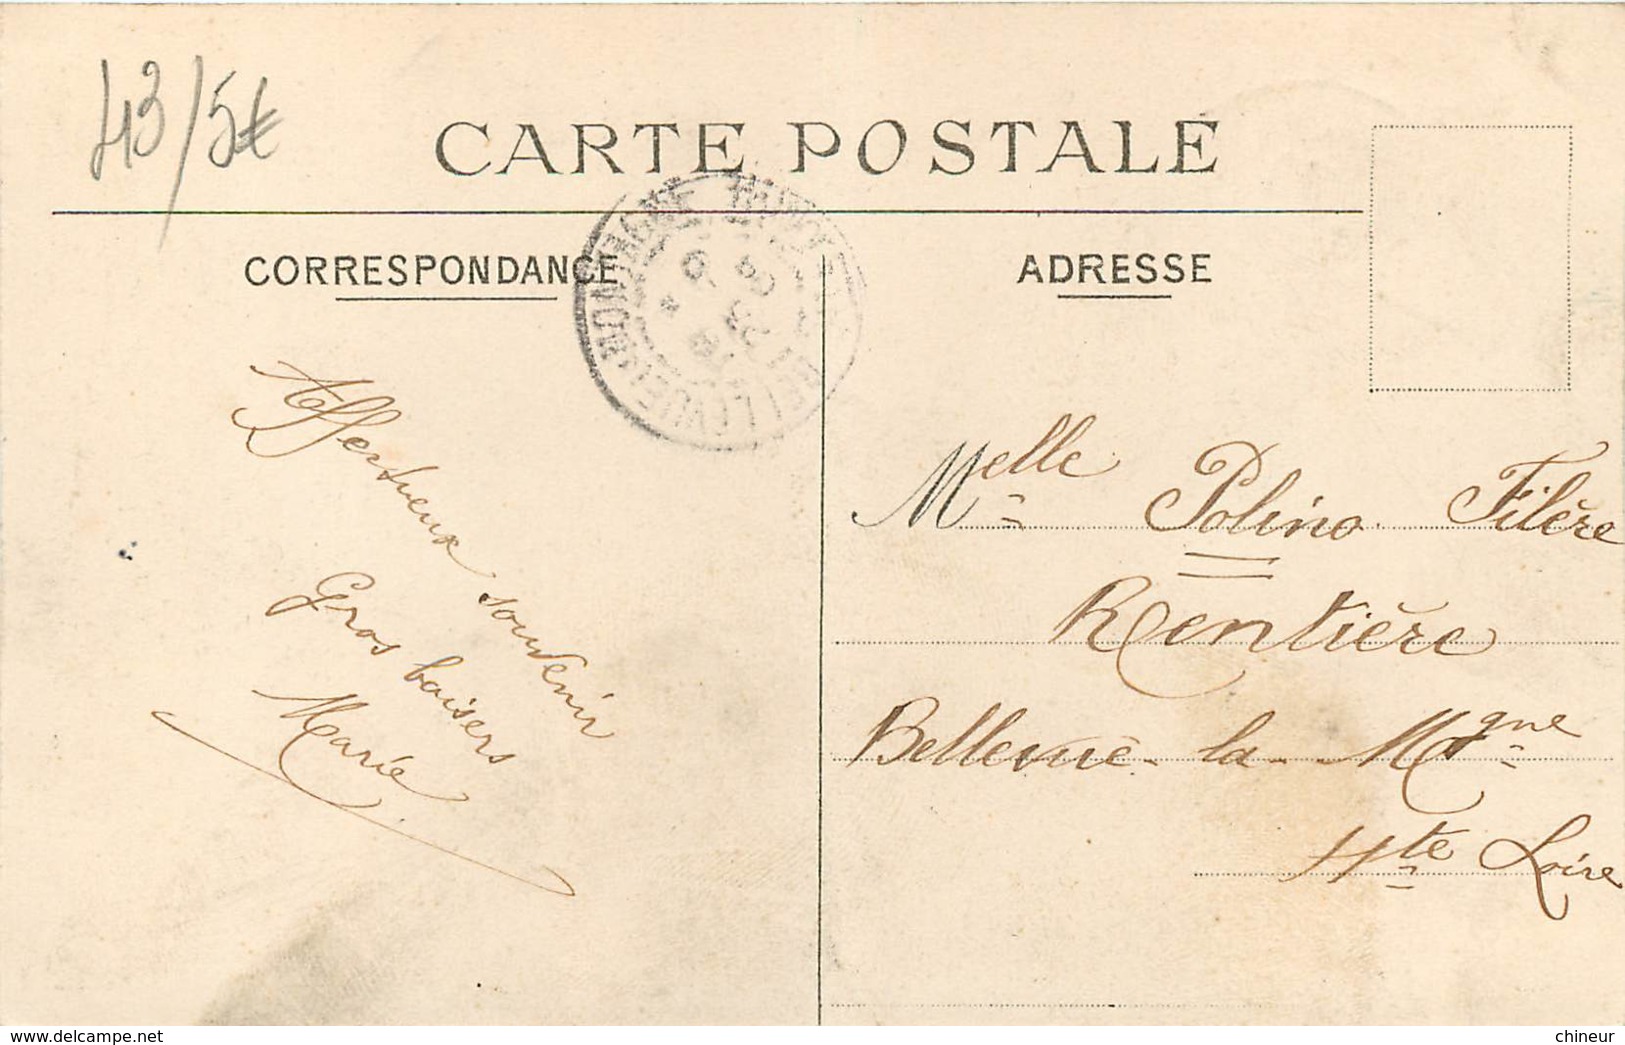 43/5€
CARTE POSTALE
CORRESPONDANCE
ADRESSE
Affectueux souvenir
Gros baisers
Marie
Melle Polino Filère
Rentière
Bellevue-la-Mgne
Hte Loire
www.delcampe.net
chineur